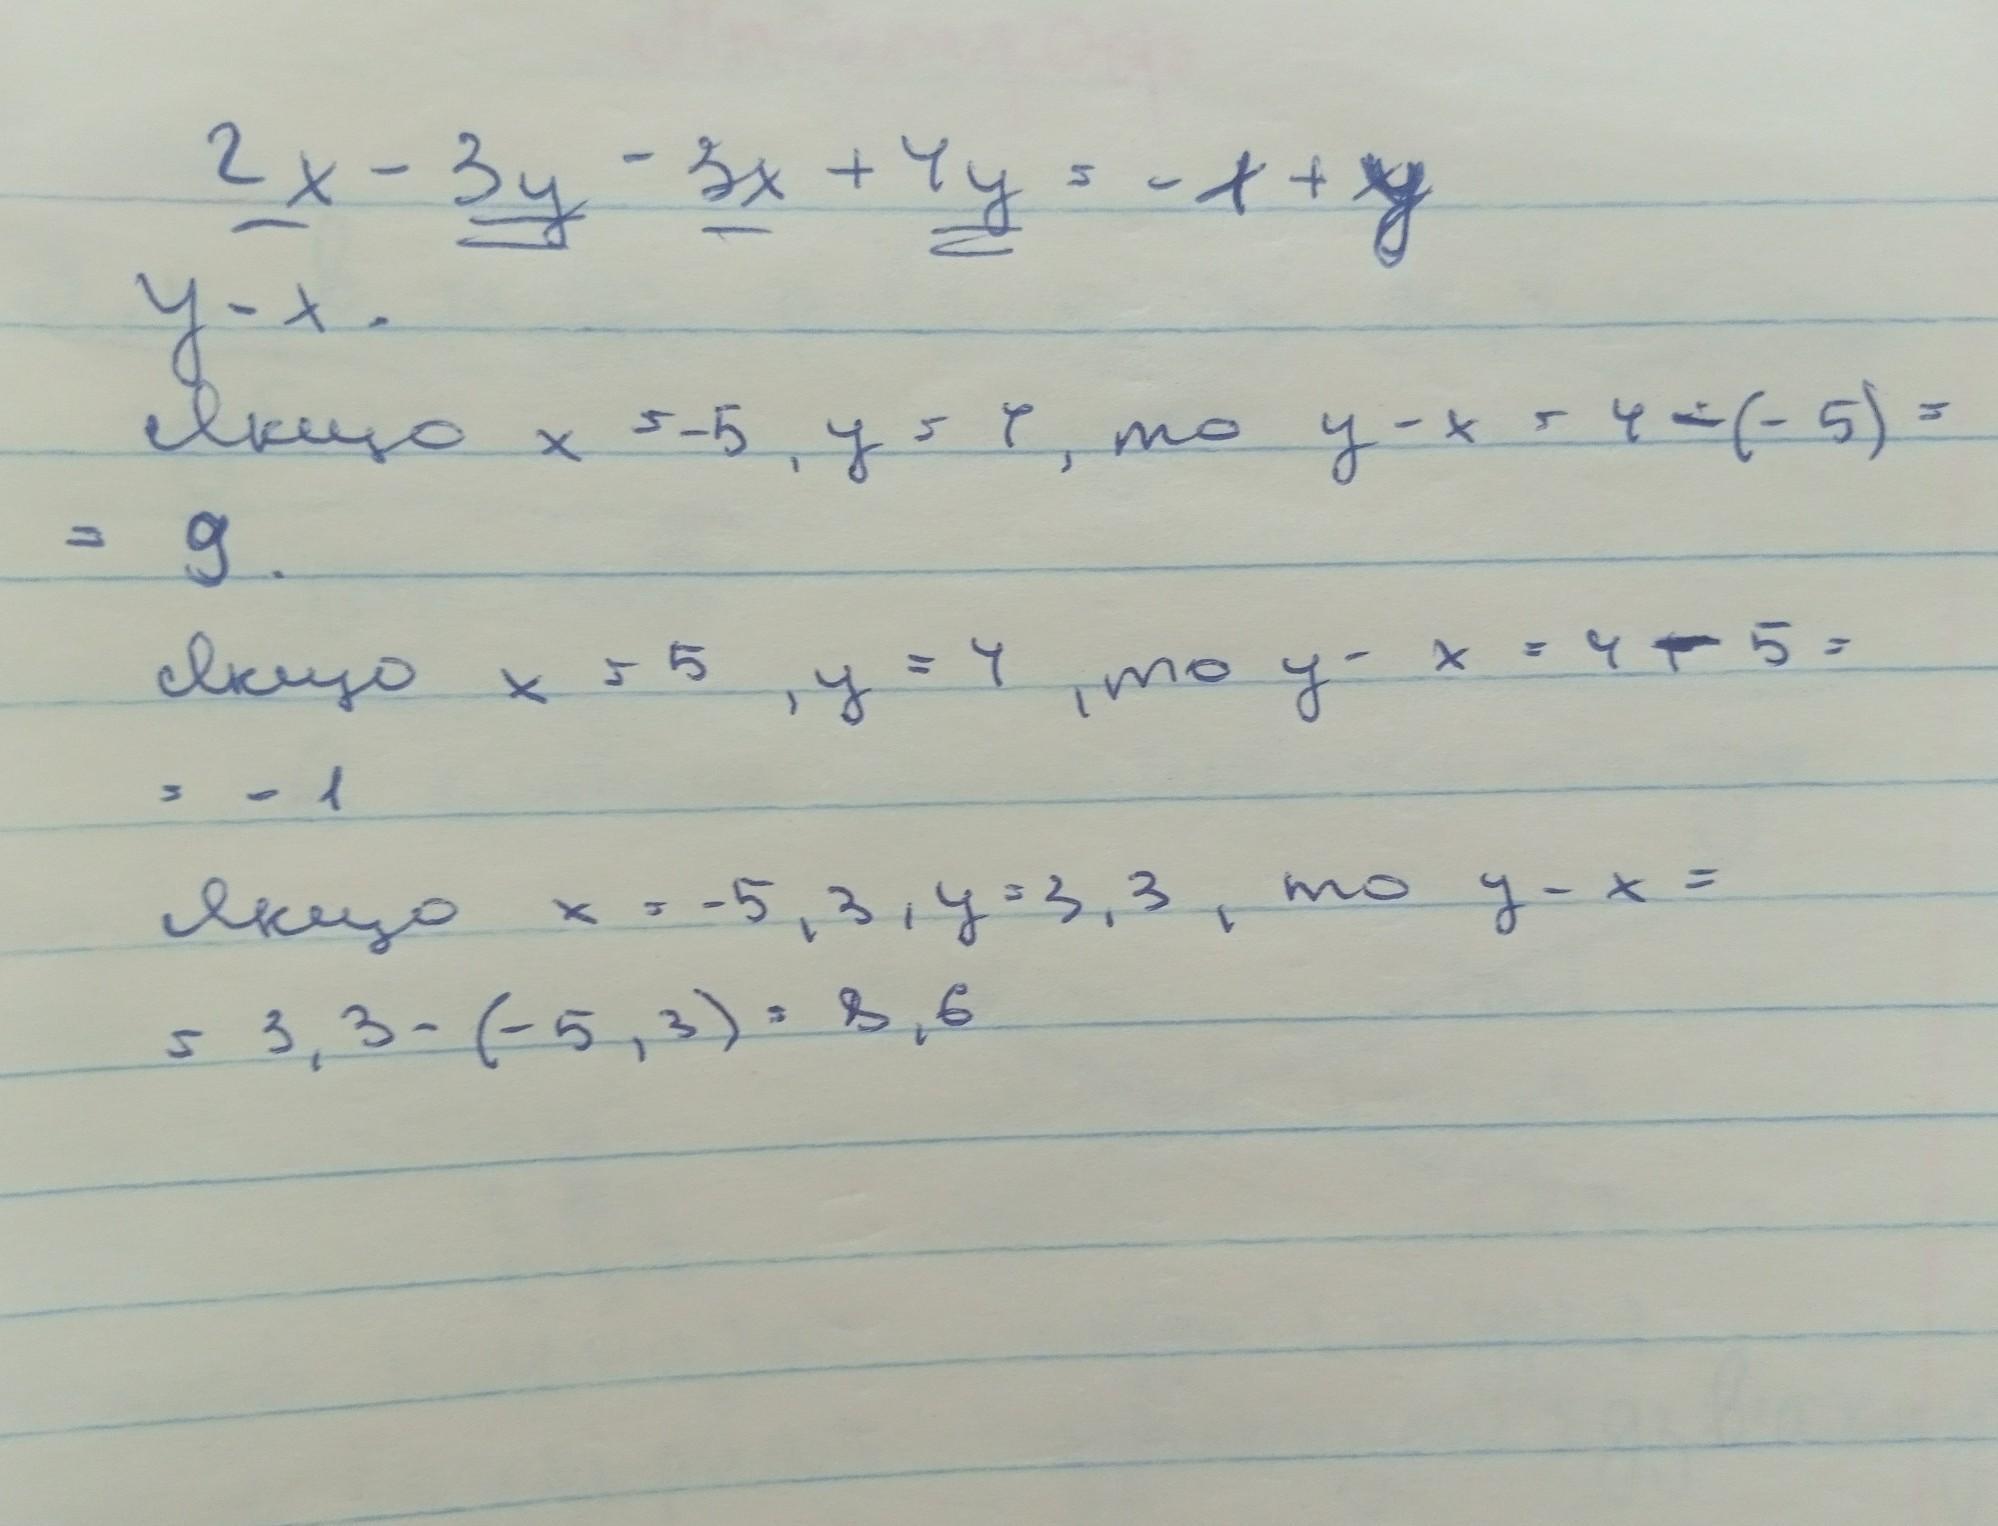 2x - 3y - 3x + 4y = - x + y
y - x .
Якщо x = -5, y = 4, то y - x = 4 - (-5) =
= 9.
Якщо x = 5, y = 4, то y - x = 4 - 5 =
= - 1
Якщо x = -5,3, y = 3,3, то y - x =
= 3,3 - (-5,3) = 8,6